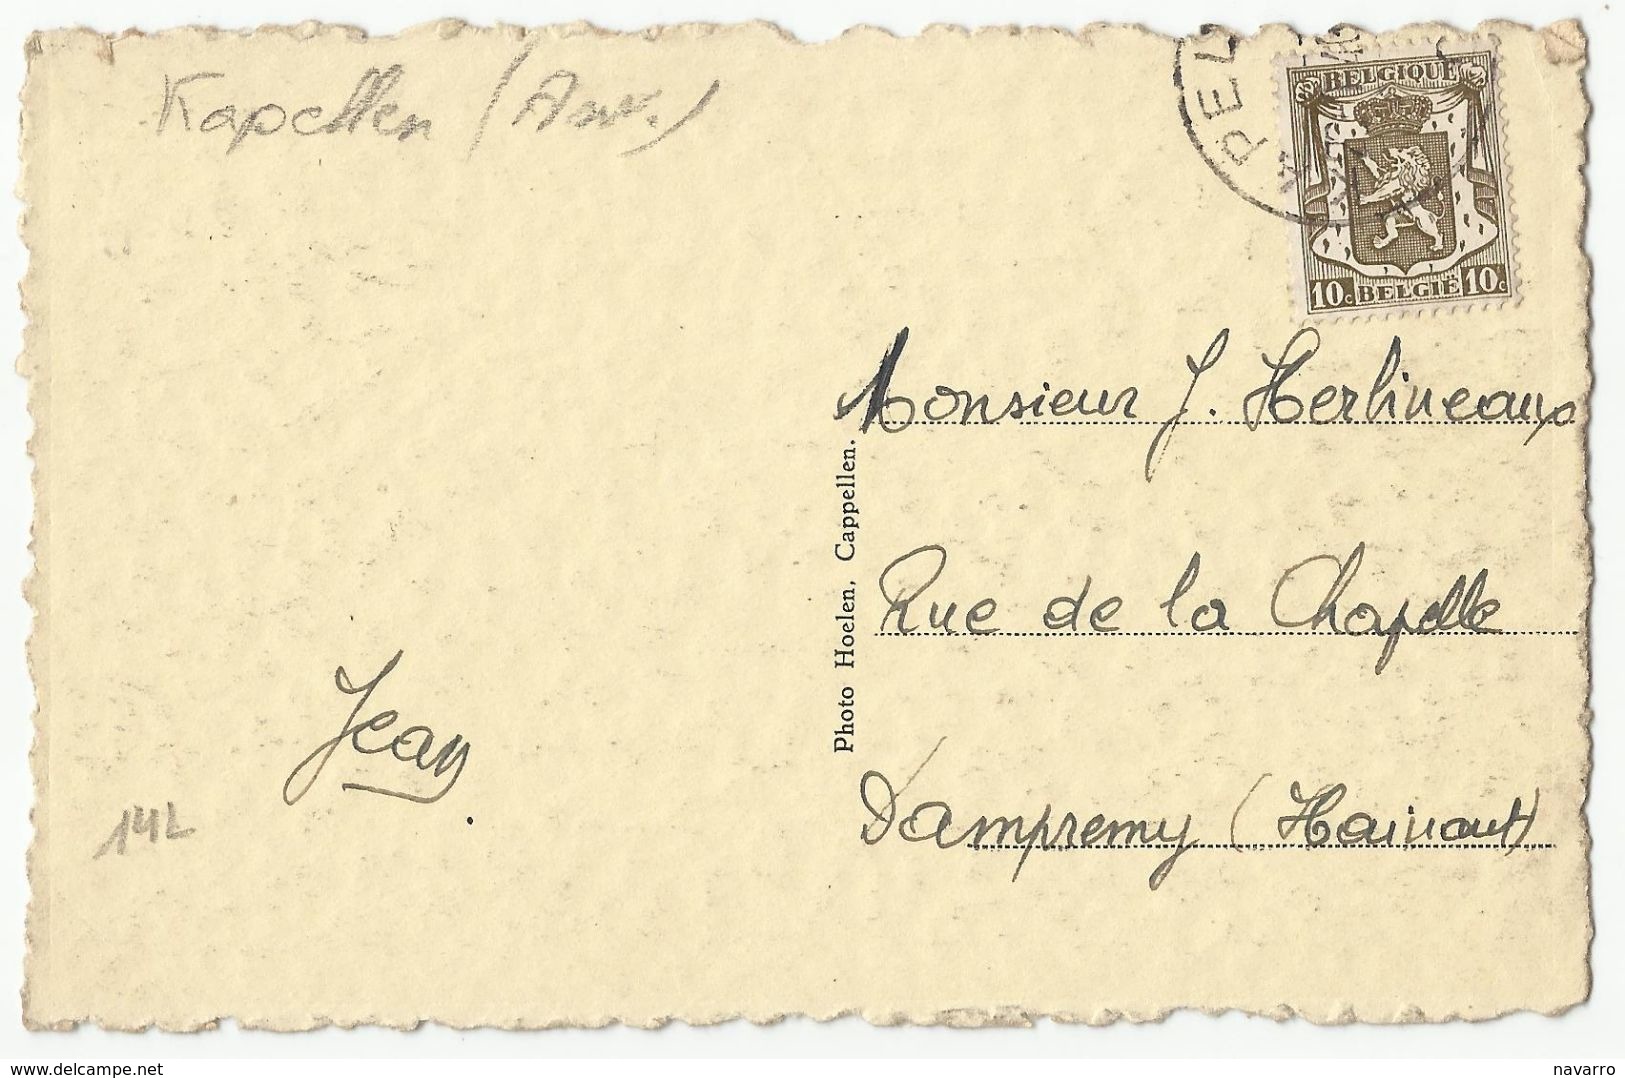 Kapellen (Antw.)
PEL
BELGIQUE
10c BELGIË 10c
Monsieur J. Herlineaux
Photo Hoelen, Cappellen.
Rue de la Chapelle
Jean
Dampremy (Hainaut)
142
delcampe.net
navarro